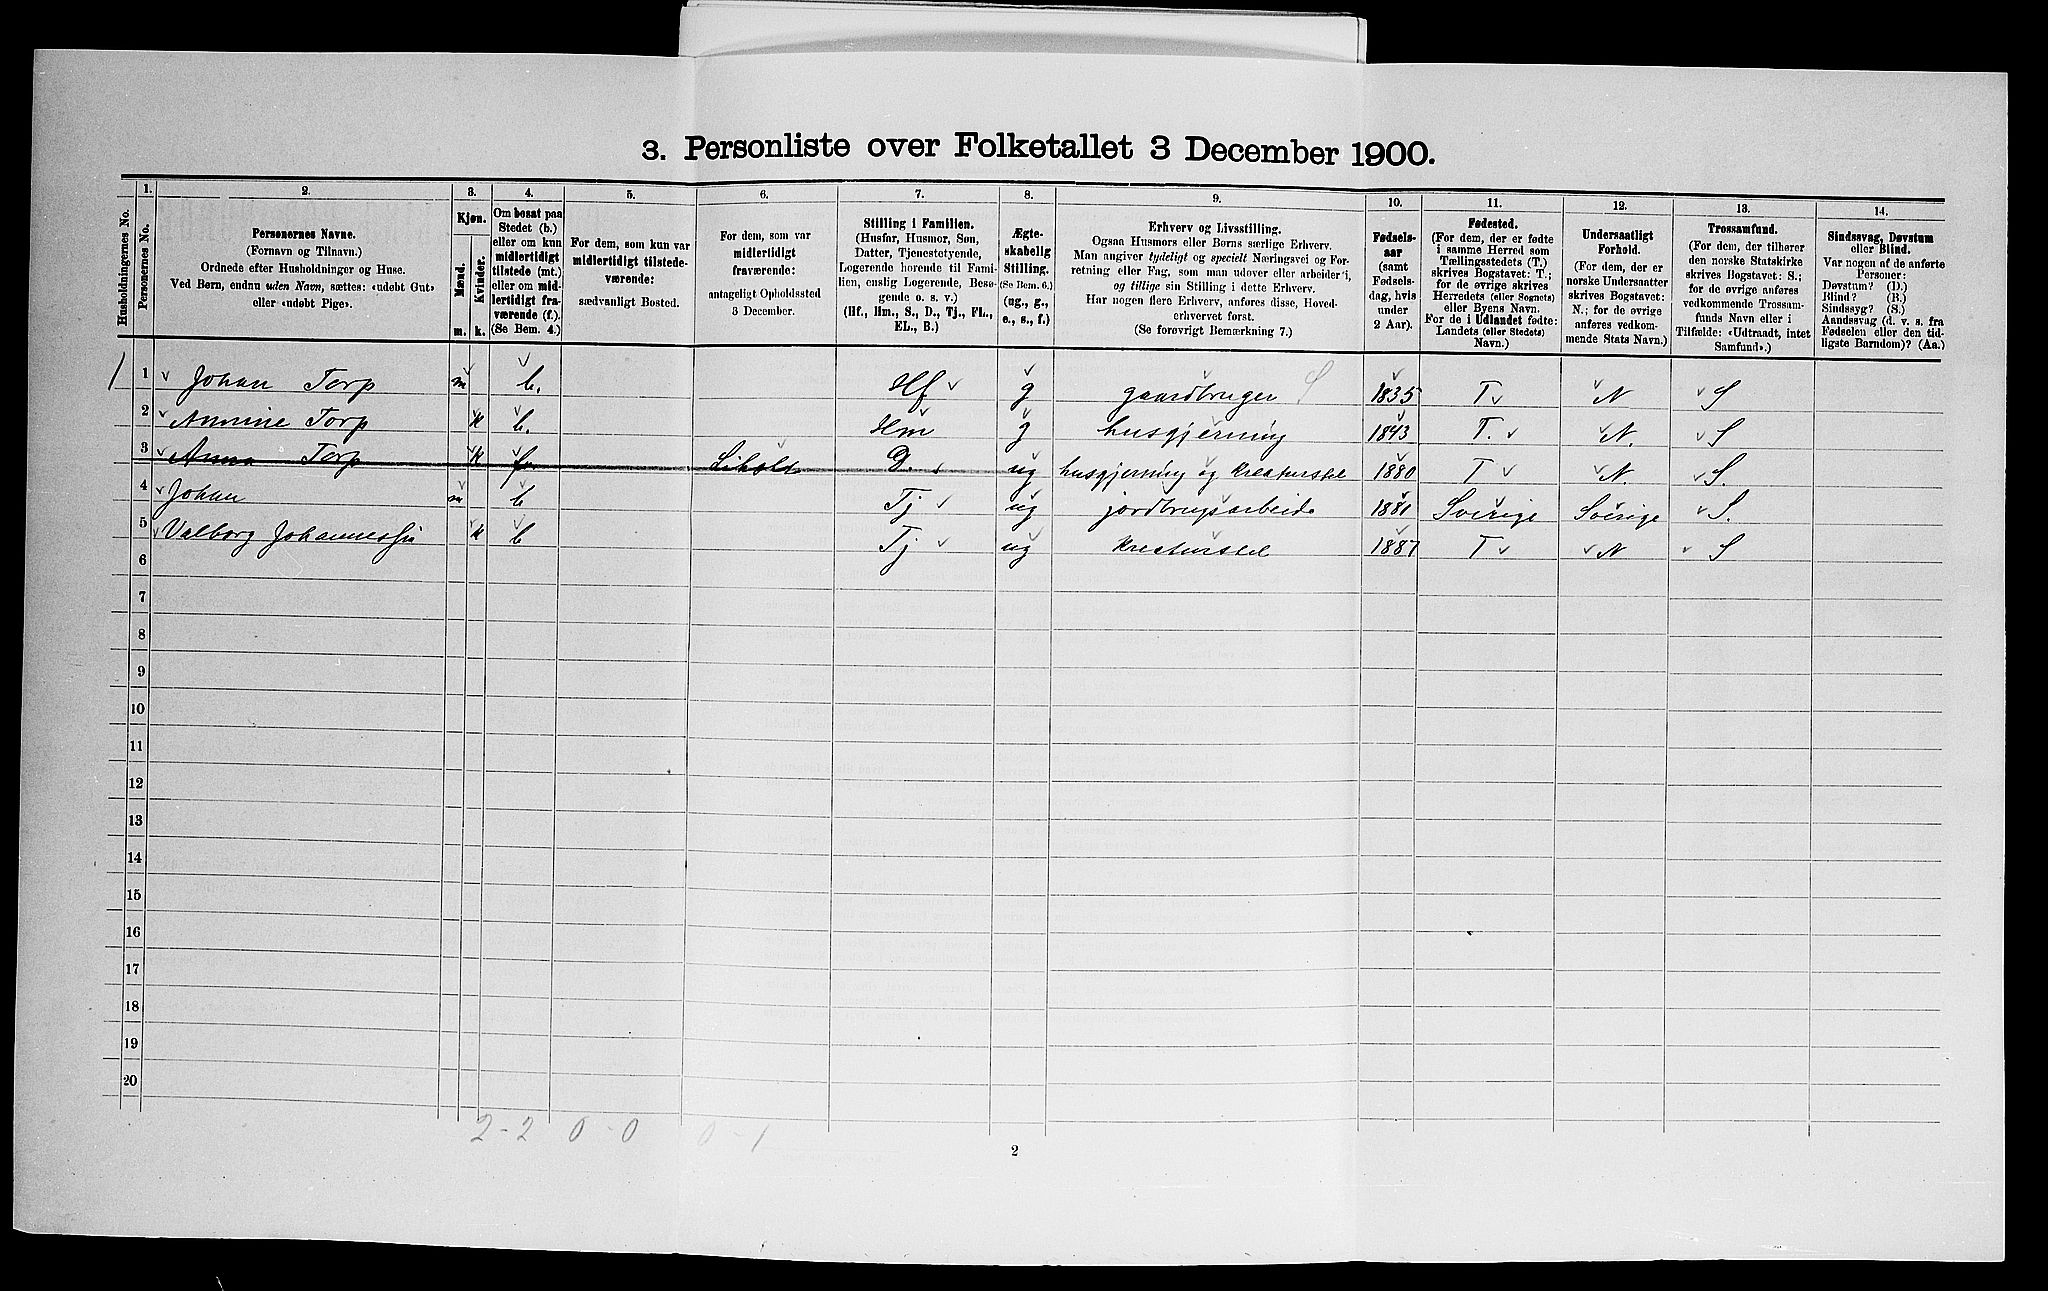 3. Personliste over Folketallet 3 December 1900.
Husholdningernes No.
1.
Personernes No.
2.
Personernes Navne.
(Fornavn og Tilnavn.)
Ordnede efter Husholdninger og Huse.
Ved Børn, endnu uden Navn, sættes: «udøbt Gut»
eller «udøbt Pige».
3.
Kjøn.
Mænd.
Kvinder.
m. k.
4.
Om bosat paa
Stedet (b.)
eller om kun
midlertidigt
tilstede (mt.)
eller om mid-
lertidigt fra-
værende (f.).
(Se Bem. 4.)
5.
For dem, som kun var
midlertidigt tilstede-
værende:
sædvanligt Bosted.
6.
For dem, som var
midlertidigt
fraværende:
antageligt Opholdssted
3 December.
7.
Stilling i Familien.
(Husfar, Husmor, Søn,
Datter, Tjenestetyende,
Logerende hørende til Fami-
lien, enslig Logerende, Besø-
gende o. s. v.)
(Hf., Hm., S., D., Tj., FL.,
EL., B.)
8.
Ægte-
skabelig
Stilling.
(Se Bem. 6.)
(ug., g.,
e., s., f.)
9.
Erhverv og Livsstilling.
Ogsaa Husmors eller Børns særlige Erhverv.
Man angiver tydeligt og specielt Næringsvei og For-
retning eller Fag, som man udøver eller arbeider i,
og tillige sin Stilling i dette Erhverv.
Har nogen flere Erhverv, anføres disse, Hoved-
erhvervet først.
(Se forøvrigt Bemærkning 7.)
10.
Fødsels-
aar
(samt
Fødsels-
dag, hvis
under
2 Aar).
11.
Fødested.
(For dem, der er fødte
i samme Herred som
Tællingsstedets (T.)
skrives Bogstavet: T.;
for de øvrige skrives
Herredets (eller Sognets)
eller Byens Navn.
For de i Udlandet fødte:
Landets (eller Stedets)
Navn.)
12.
Undersaatligt
Forhold.
(For dem, der er
norske Undersaatter
skrives Bogstavet:
N.; for de øvrige
anføres vedkom-
mende Stats Navn.)
13.
Trossamfund.
(For dem, der tilhører
den norske Statskirke
skrives Bogstavet: S.;
for de øvrige anføres
vedkommende Trossam-
funds Navn eller i
Tilfælde: «Udtraadt, intet
Samfund».)
14.
Sindssvag, Døvstum
eller Blind.
Var nogen af de anførte
Personer:
Døvstum? (D.)
Blind? (B.)
Sindssyg? (S.)
Aandssvag (d. v. s. fra
Fødselen eller den tid-
ligste Barndom)? (Aa.)
1 1 Johan Torp m b. Hf g gaardbruger S 1835 T N S
2 Annine Torp k b. Hm g husgjerning 1843 T. N. S
3 Anna Torp k f. D. ug husgjerning og kreaturstel 1880 T N. S.
4 Johan m b Tj ug jordbrugsarbeide 1881 Sverige Sverige S.
5 Valborg k b Tj ug kreaturstel 1887 T N S
6
7
8
9
10
11
12
13
14
15
16
17
18
19
20
2-2 0-0 0-1
2